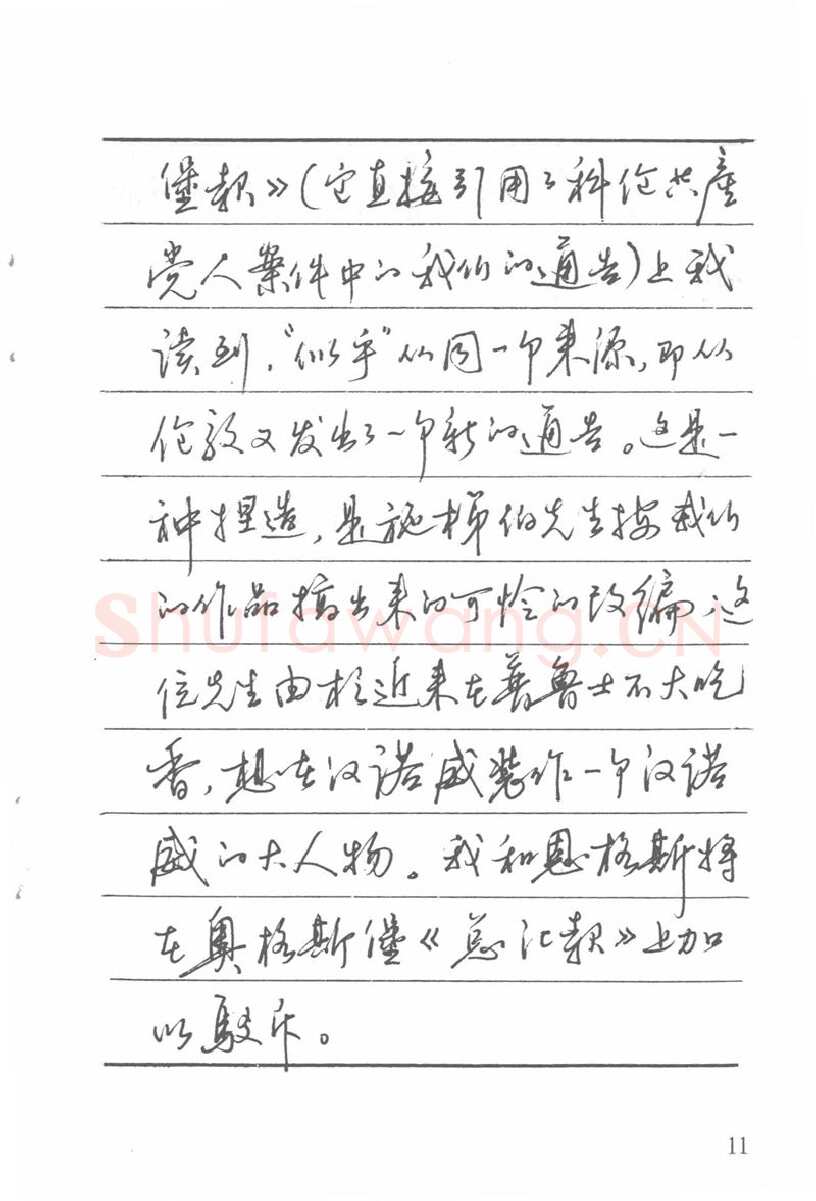 堡报》（它直接引用了科伦共产
党人案件中的我们的通告）上我
读到，“似乎”从同一个来源，即从
伦敦又发出了一个新的通告。这是一
种捏造，是施梯伯先生按我们
的作品搞出来的可怜的改编，这
位先生由于近来在普鲁士不大吃
香，想在汉诺威装作一个汉诺
威的大人物。我和恩格斯将
在奥格斯堡《总汇报》上加
以驳斥。
shufawang.CN
11